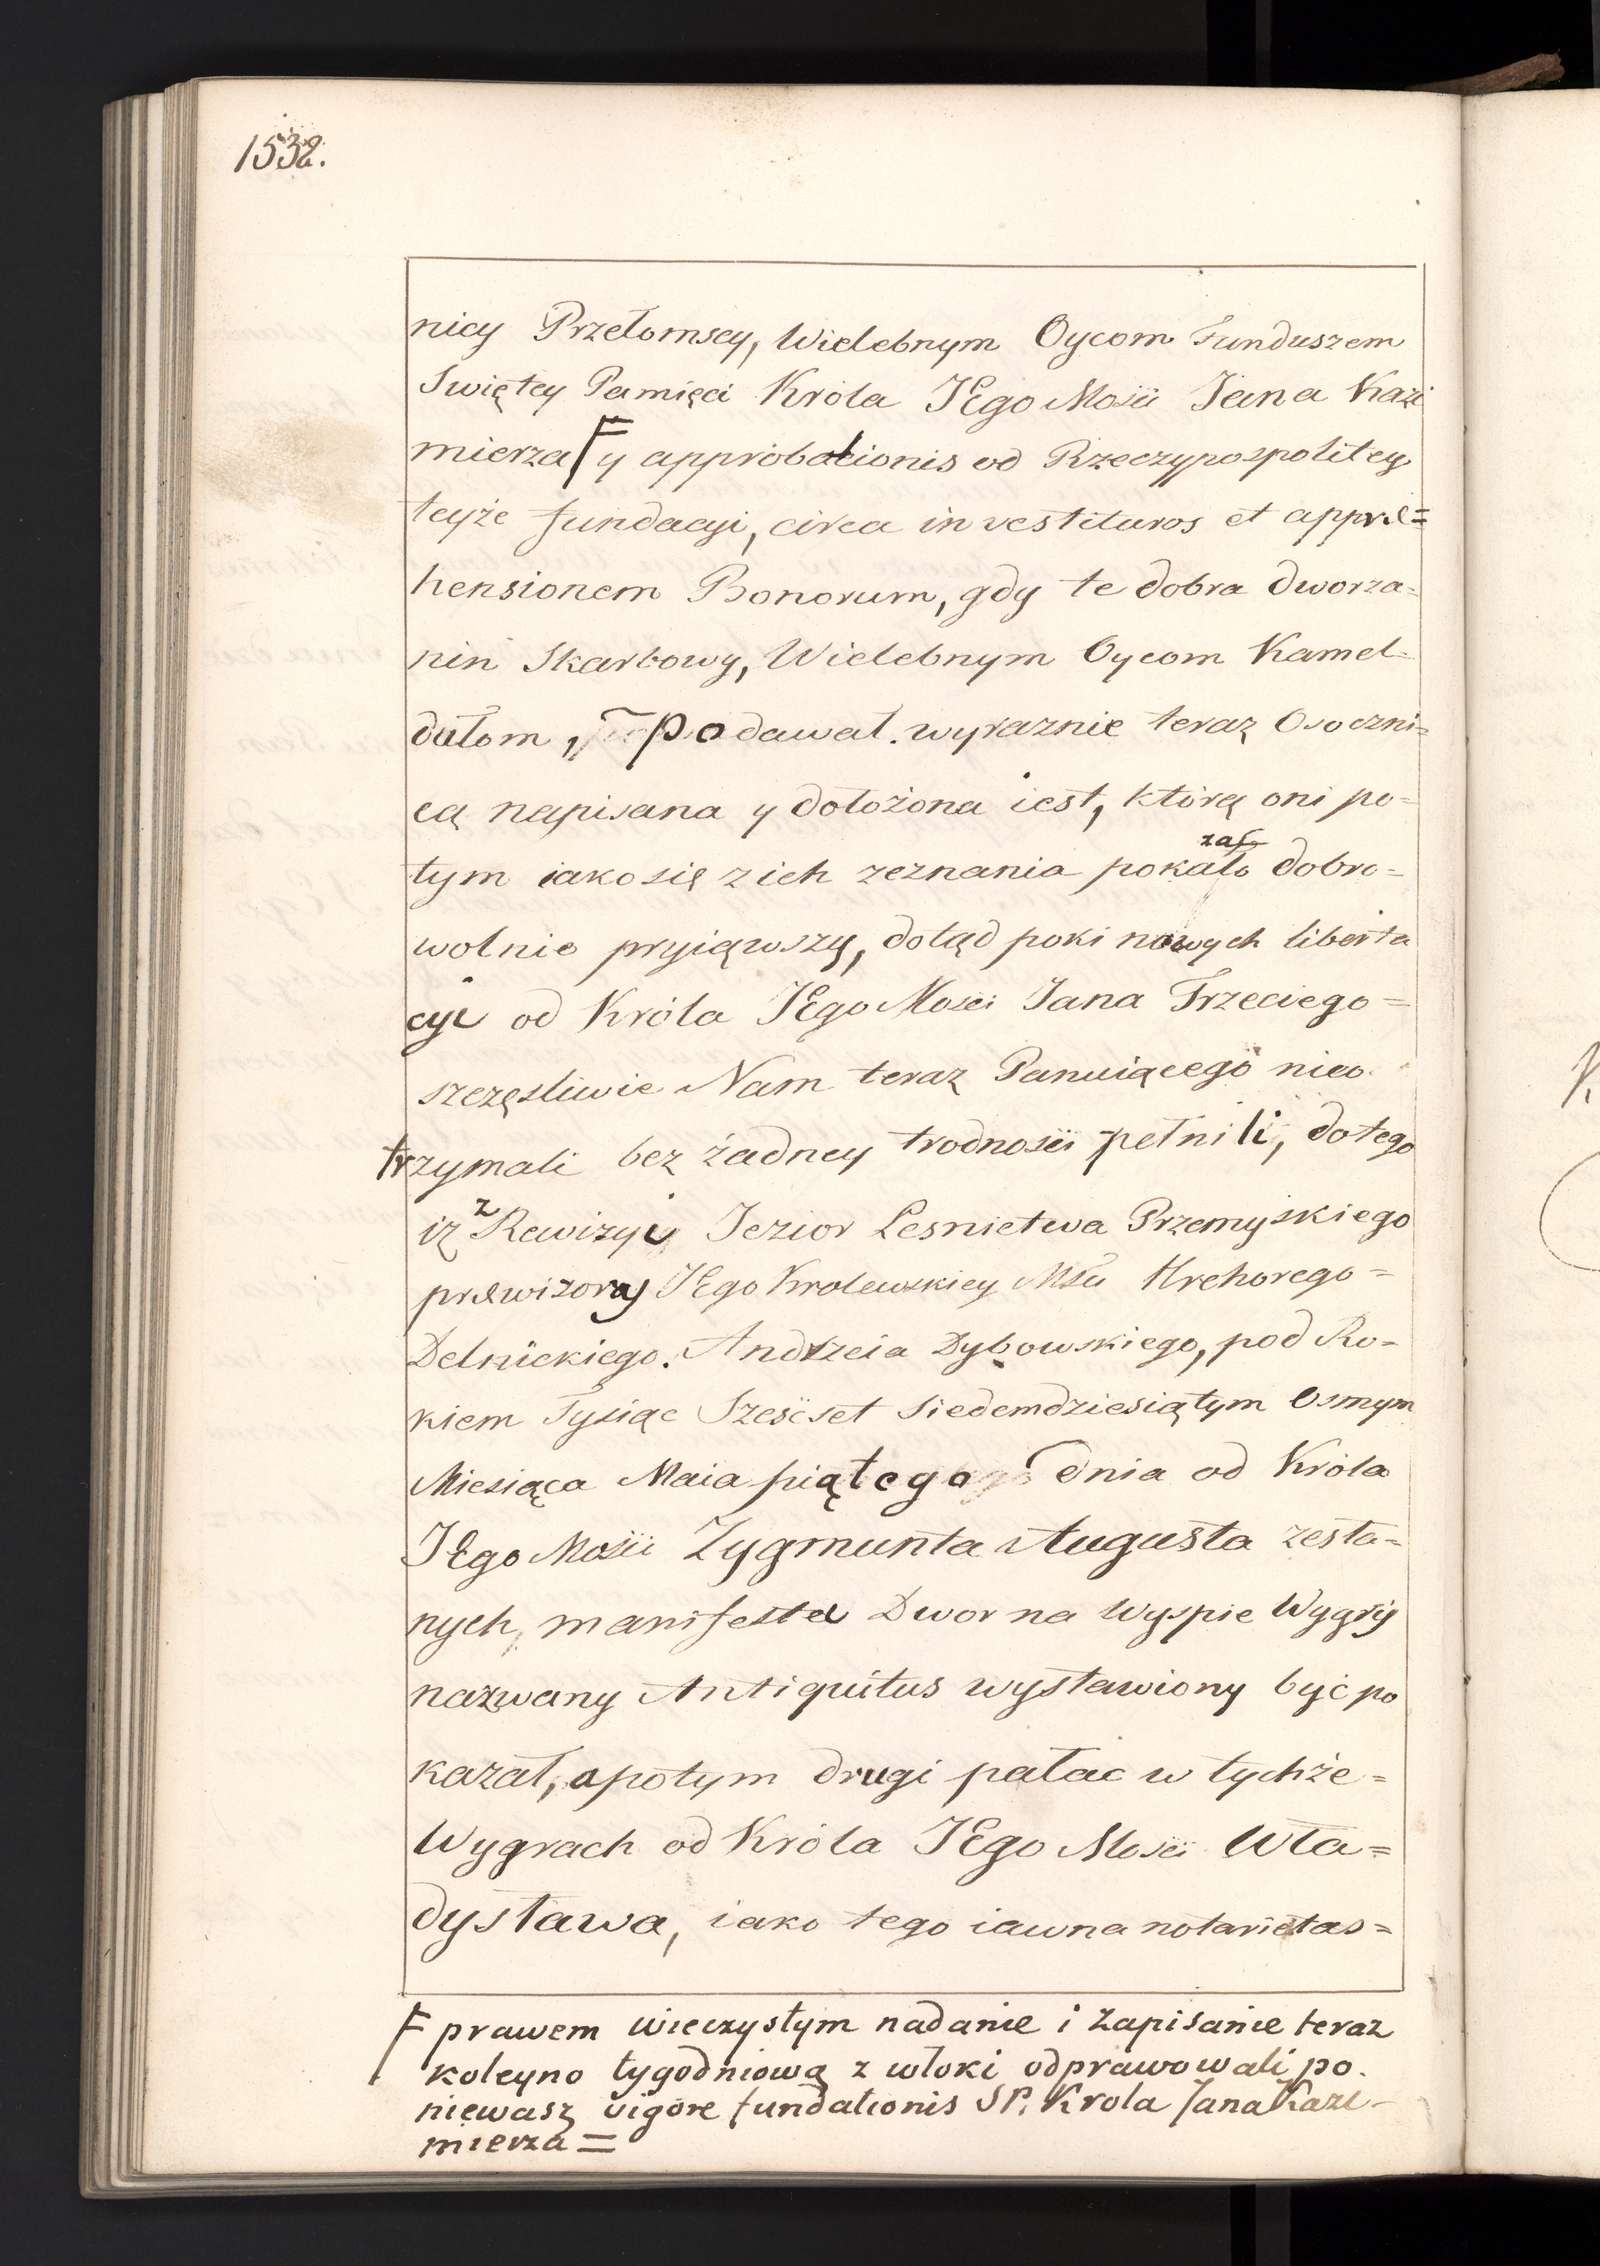 1532.
nicy Przełomscy, Wielebnym Oycom Funduszem
Swiętey Pamięci Króla JEgo Mości Jana Kazi
mierza F y approbationis od Rzeczypospolitey
teyże fundacyi, circa investituros et appræ=
hensionem Bonorum, gdy te dobra dworza=
nin Skarbowy, Wielebnym Oycom Kamel=
dułom, podawał. wyraznie teraz Osoczni=
cą napisana y dołożona iest, którą oni po=
tym iako się z ich zeznania pokazało dobro=
wolnie pryiąwszy, dotąd poki nowych liberta
cyi od Króla JEgo Mości Jana Trzeciego=
szczęsliwie Nam teraz Panuiącego nieo
trzymali bez żadney trodnosci pełnili, do tego
iż z Rewizyi Jezior Lesnictwa Przemyskiego
præwizora JEgo Krolewskiey Mści Hrehorego=
Delnickiego. Andrzeia Dybowskiego, pod Ro=
kiem Tysiąc Szescset Siedemdziesiątym Osmym
Miesiąca Maia piątego dnia od Króla
JEgo Mości Zygmunta Augusta zesta=
nych, manifeste Dwor na Wyspie Wygry
nazwany Antiquitus wystawiony być po
kazał, a potym drugi pałac w tychże=
Wygrach od Króla JEgo Mości Wła=
dysława, iako tego iawna notarietas=
F prawem wieczystym nadanie i zapisanie teraz
koleyno tygodniową z włoki odprawowali po.
niewasz vigore fundationis SP. Krola Jana Kazi-
mierza=